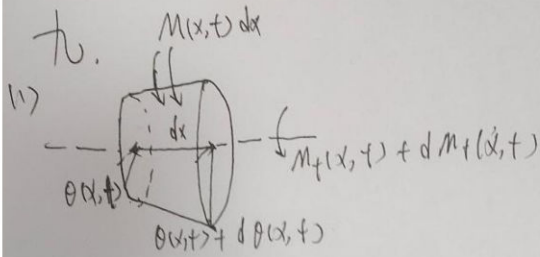 九.
M(x,t) dx
(1)
dx
M_t(x,t) + dM_t(x,t)
θ(x,t)
θ(x,t) + dθ(x,t)